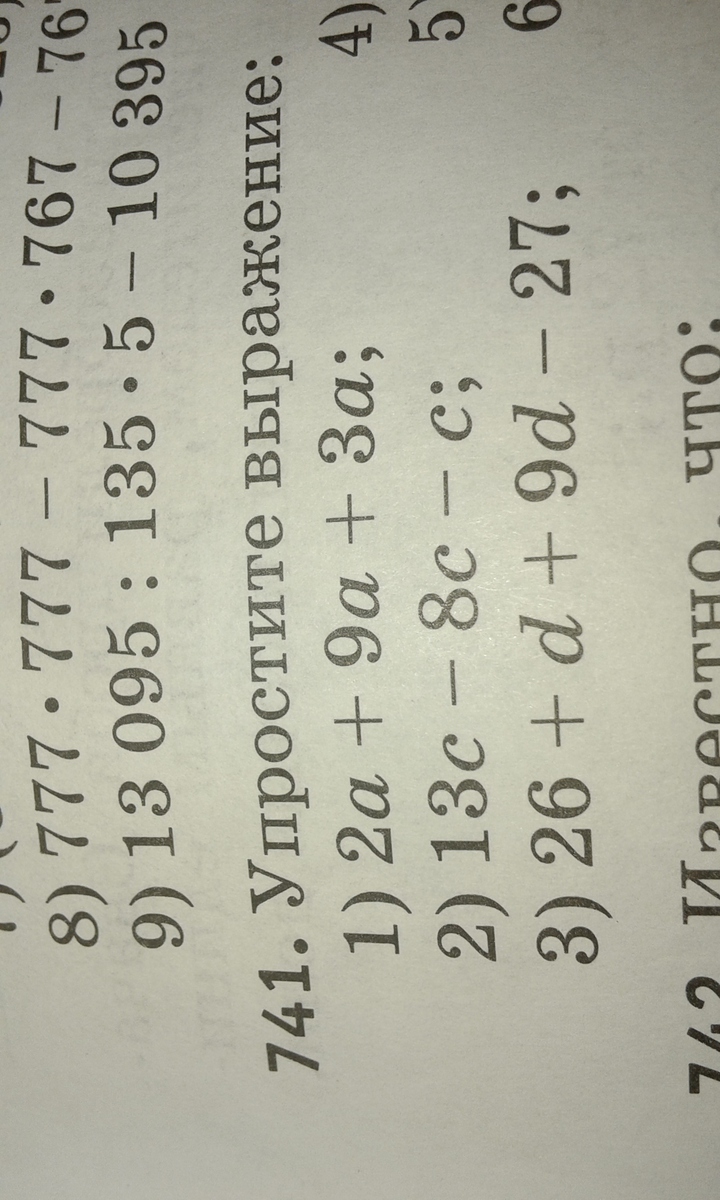 8) 777 · 777 – 777 · 767 – 767
9) 13 095 : 135 · 5 – 10 395
741. Упростите выражение:
1) 2a + 9a + 3a; 4)
2) 13c – 8c – c; 5)
3) 26 + d + 9d – 27; 6
742. Известно, что: